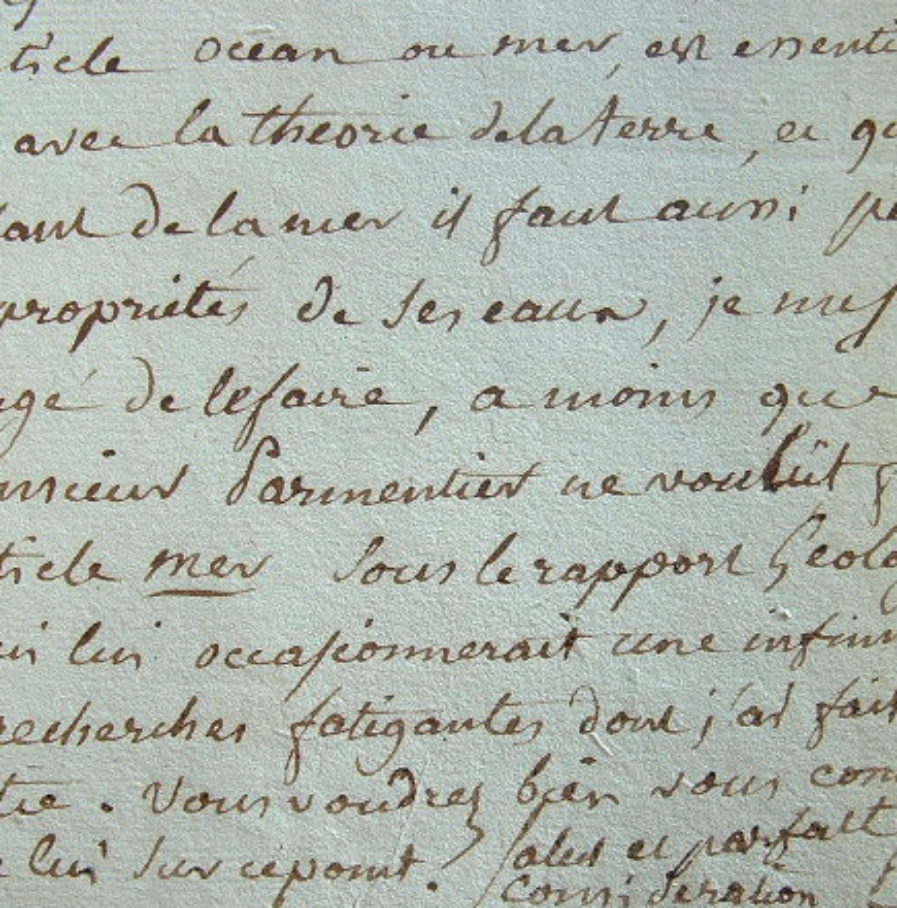 ticle ocean ou mer, est essenti
avec la théorie dela terre, et qu
lant de la mer il faut aussi pa
propriétés de ses eaux, je me s
ngé de le faire, a moins que
onsieur Parmentier ne voulût f
ticle mer sous le rapport Géolog
ui lui occasionnerait une infini
recherches fatigantes dont j'ai fait
tie. Vous voudrez bien vous con
lui sur ce point. Salut et parfait
Considération